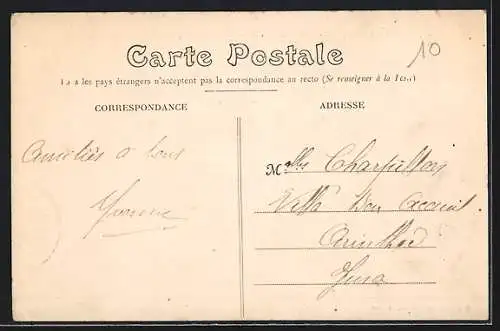 10
Carte Postale
les pays étrangers n'acceptent pas la correspondance au recto (Se renseigner à la Poste)
CORRESPONDANCE
ADRESSE
Amitiés à tous
Yvonne
M^elles Charpillon
Villa Bon Accueil
Arinthod
Jura